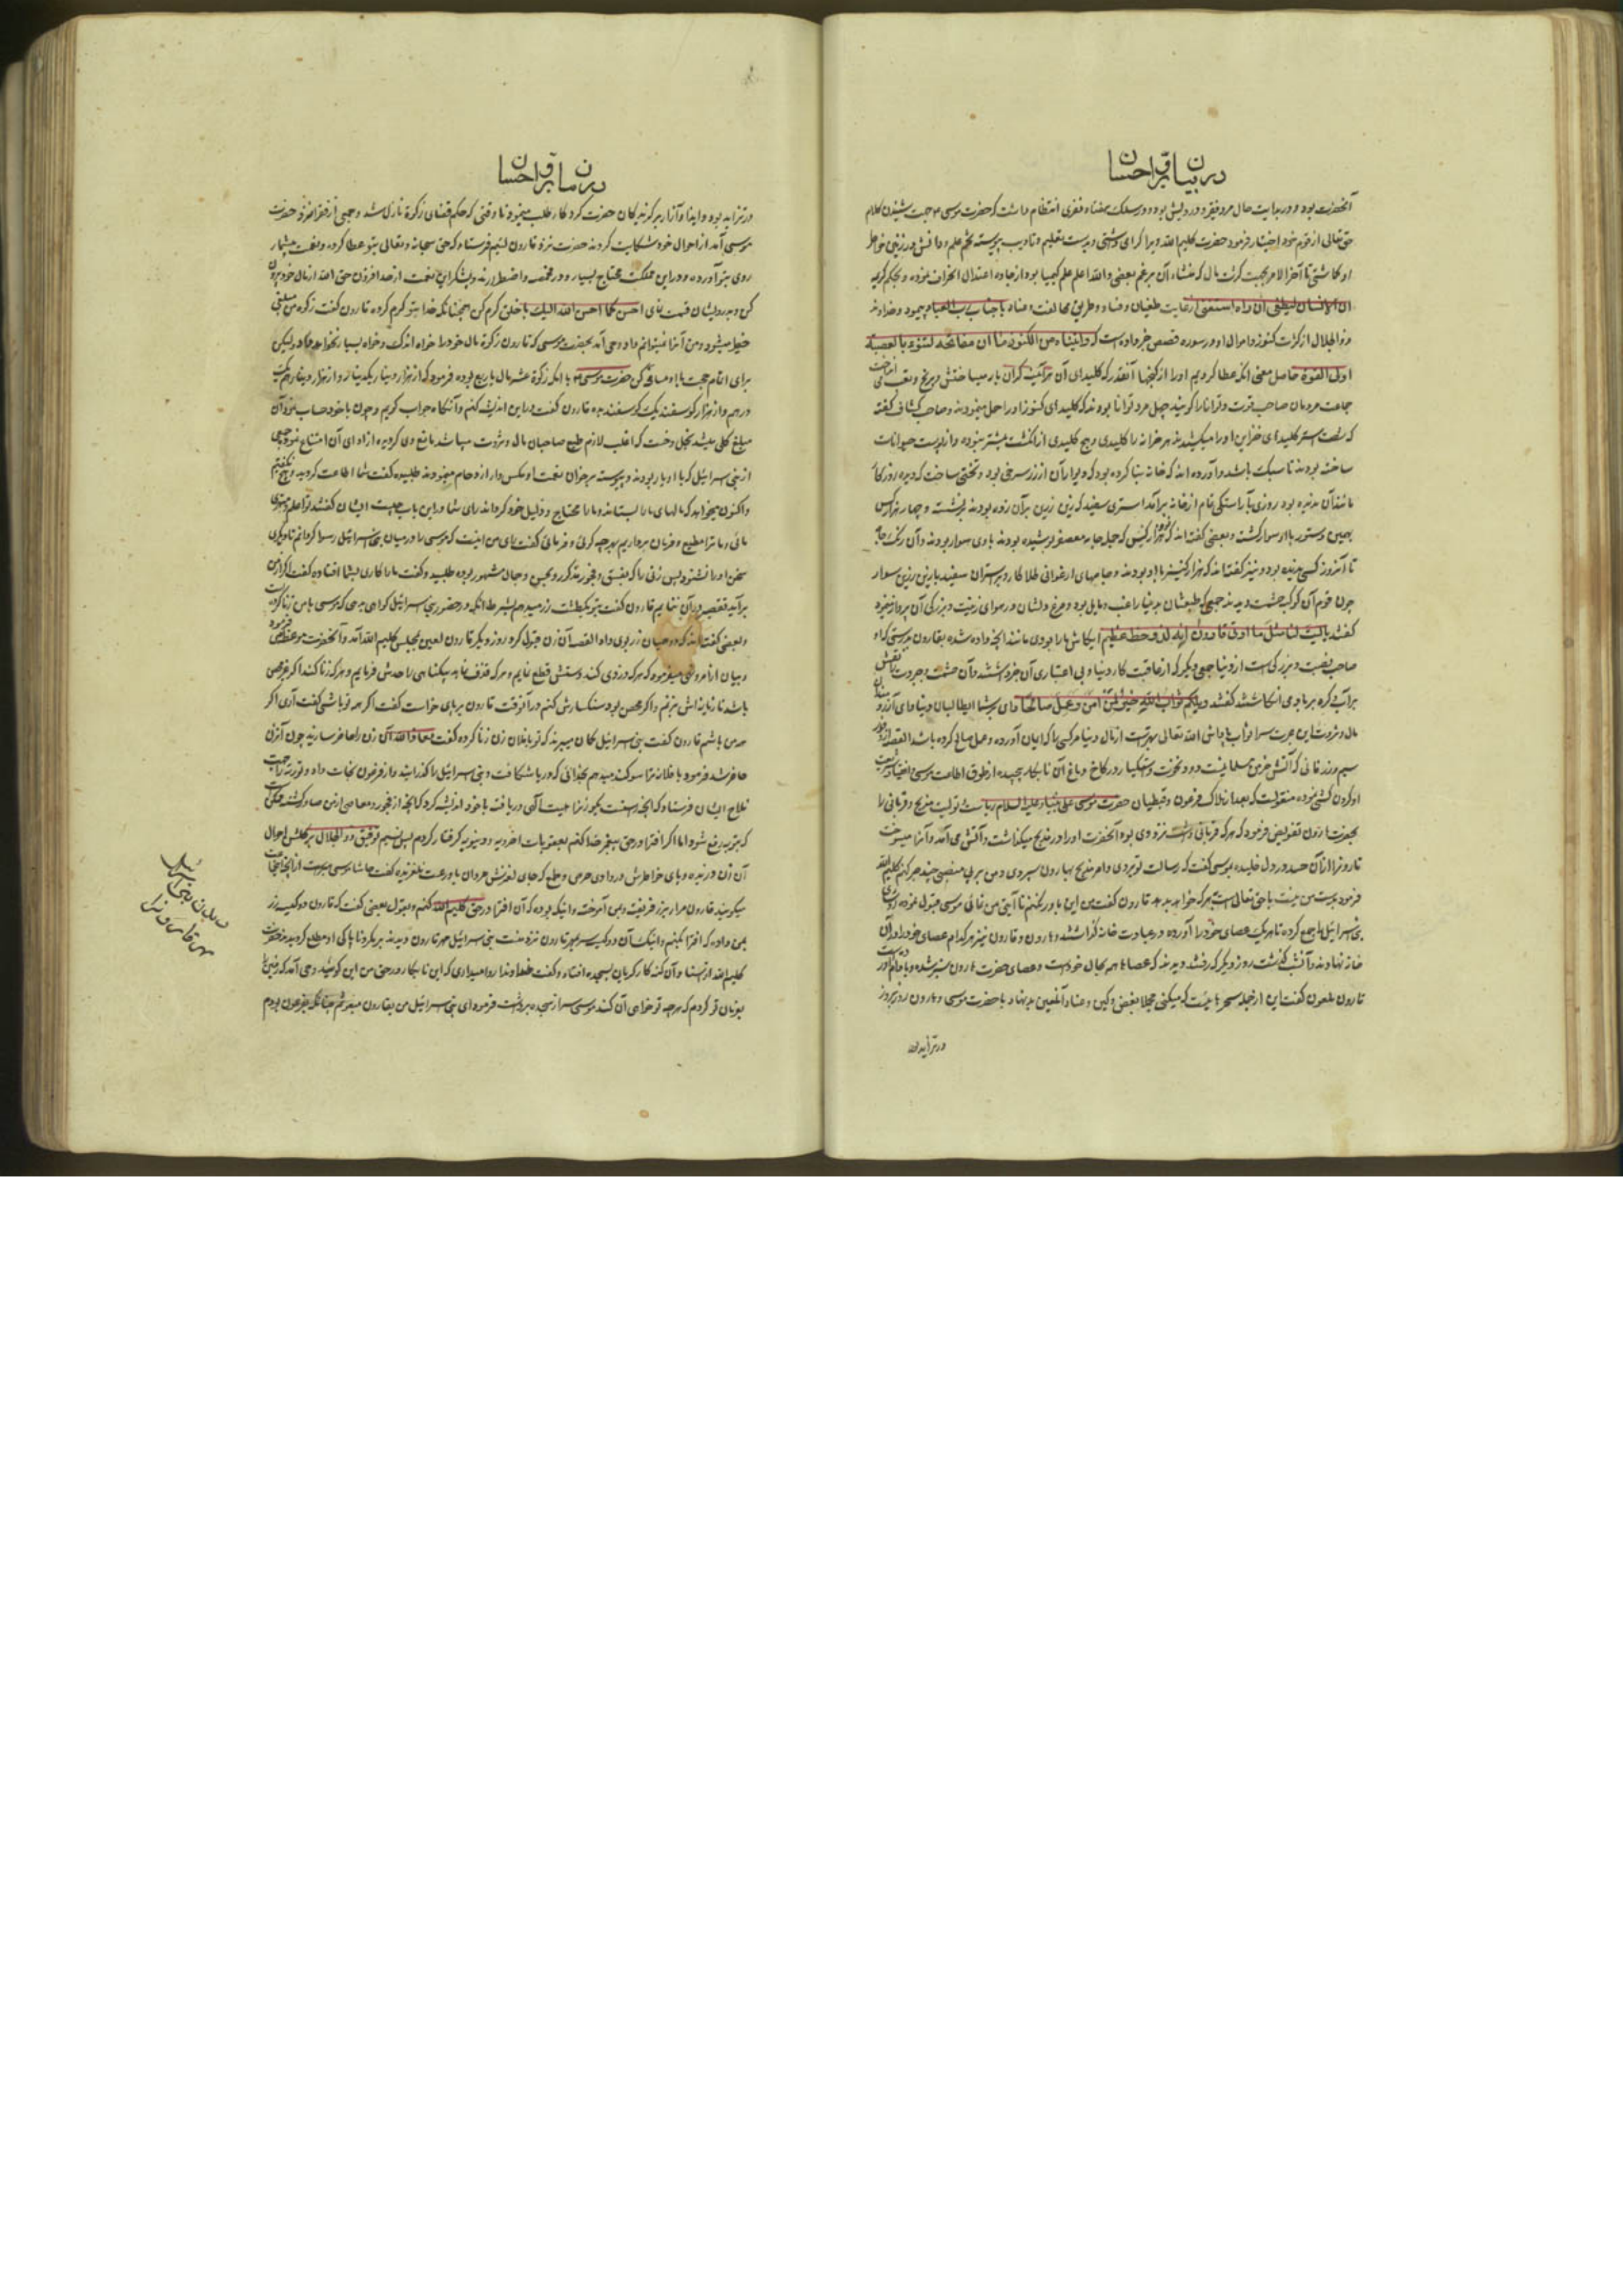 در بیان قرا احسان
آنحضرت بود و در بدایت حال مرد فقیر و درویش بوده و در سلک هفتاد نفری انتظام داشت که حضرت موسی جهت شنیدن کلام
حق تعالی از قوم خود اختیار فرمود حضرت کلیم الله ویرا گرامی داشتی و بدست تعلیم و تادیب پیوسته تخم علم و دانش در زمین خاطر
او کاشتی تا آخر الامر بجهت کثرت مال که منشاء آن بزعم بعضی والله اعلم علم کیمیا بود از جاده اعتدال انحراف نموده و بحکم کریمه
ان الانسان لیطغی ان راه استغنی رعایت طغیان و فساد و طریق مخالفت و عناد با جناب رب العباد پیمود و خداوند
ذو الجلال از کثرت کنوز و اموال او در سوره قصص خبر داده است که واتیناه من الکنوز ما ان مفاتحه لتنوء بالعصبة
اولی القوة حاصل معنی آنکه عطا کردیم او را از گنجها آنقدر که کلیدهای آن گران بار میساختش و برنج و تعب
جماعت مردمان صاحب قوت و توانا را گویند چهل مرد توانا بودند که کلیدهای کنوز او را حمل مینمودند و صاحب کشاف گفته
که شصت استر کلیدهای خزاین او را میکشیدند هر خزانه را کلیدی و هیچ کلیدی از انگشت بیشتر نبوده و از پوست حیوانات
ساخته بودند تا سبک باشد و آورده اند که خانه بنا کرده بود که دیوار آن از زر سرخ بود و تختی ساخت که دیده روزگار
مانند آن ندیده بود روزی بآراستگی تمام از خانه برآمد استری سفید که زین زرین بر آن زده بودند برنشست و چهار هزار کس
بهمین دستور با او سوار گشت و بعضی گفته اند که نود هزار کس که جمله جامه معصفر پوشیده بودند با وی سوار بودند و آن رنگ جامه
تا آنروز کسی ندیده بود و نیز گفته اند که هزار کنیز با او بودند و جامهای ارغوانی طلا کار بر استران سفید با زین زرین سوار
چون قوم آن کوکبه حشمت دیدند جمعی که طبعشان بدنیا راغب و مایل بود و مرغ دلشان در هوای زینت و بزرگی آن پرواز نمود
گفتند یالیت لنا مثل ما اوتی قارون انه لذو حظ عظیم ایکاش ما را بودی مانند آنچه داده شده بقارون بدرستی که او
صاحب نصیب و بزرگی است از دنیا جمعی دیگر که از عاقبت کار دنیا و بی اعتباری آن خبر داشتند و آن حشمت و جبروت را نقش
بر آب و گره بر باد می انگاشتند گفتند ویلکم ثواب الله خیر لمن آمن وعمل صالحا وای بر شما ای طالبان دنیا و ای آرزو
مال و ثروت این عبرت سرا ثواب و پاداش الله تعالی بهتر است از مال دنیا مر کسی را که ایمان آورده و عمل صالح کرده باشد القصه
سیم و زر فانی که آتش خرمن مسلمانیست دود نخوت و استکبار در کاخ دماغ آن نابکار پیچیده از طوق اطاعت موسی و انقیاد شریعت
او گردن کشی نموده منقولست که بعد از هلاک فرعون و قبطیان حضرت موسی علی نبینا و علیه السلام ریاست تولیت مذبح و قربانی را
بحضرت هارون تفویض فرمود که هر که قربانی داشت نزد وی بوده آنحضرت او را در مذبح میگذاشت و آتشی می آمد و آنرا میسوخت
قارون را از آن حسد در دل خلیده بموسی گفت که رسالت تو بردی و امر مذبح بهارون سپردی و من بر بی منصبی چند صبر کنم کلیم الله
فرمود بدست من نیست با حق تعالی است بهر که خواهد بدهد قارون گفت من این باور نکنم تا آیتی من نمائی موسی قبول نموده روسای
بنی اسرائیل را جمع کرده تا هر یک عصای خود را آورده در عبادت خانه گذاشتند و هارون و قارون نیز هر کدام عصای خود را در آن
خانه نهادند و آنشب گذشت روز دیگر که رفتند دیدند که عصاها همه بحال خود است و عصای حضرت هارون سبز شده
قارون ملعون گفت این از جمله سحرهاییست که میکنی مجملا بغض و کین و عناد آنلعین بدنهاد با حضرت موسی و هارون روز بروز
در تزاید بود
در بیان قرا احسان
در تزاید بود و ایذا و آزار بر گزیدگان حضرت کردگار طلب مینمود تا وقتی که حکم قضای زکوة نازل شد و جمعی از فقرا نزد حضرت
موسی آمد از احوال خود شکایت کردند حضرت نزد قارون لئیم فرستاد که حق سبحانه و تعالی بتو عطا کرده و نعمت بیشمار
روی بتو آورده و در این مملکت محتاج بسیار و در مخمصه و اضطرارند و بشکر این نعمت از صد افزون حق الله از مال خود بیرون
کن و بدرویشان قسمت نمای احسن کما احسن الله الیک با خلق کرم کن همچنانکه خدا بتو کرم کرده قارون گفت زکوة من مبلغی
خطیر میشود و من آنرا نمیتوانم داد وحی آمد بحضرت موسی که قارون زکوة مال خود را خواه اندک و خواه بسیار نخواهد داد ولیکن
برای اتمام حجت با او مسامحه کن حضرت موسی با آنکه زکوة عشر مال یا ربع بوده فرمود که از هزار دینار یکدینار و از هزار درهم یک
درهم و از هزار گوسفند یک گوسفند بده قارون گفت در این اندیشه کنم و آنگاه جواب گویم و چون با خود حساب نمود آن
مبلغ کلی میشد بخل و خست که اغلب لازم طبع صاحبان مال و ثروت میباشد مانع وی گردیده از ادای آن امتناع نمود و جمعی
از بنی اسرائیل که با او یار بودند و پیوسته بر خوان نعمت او مگس وار ازدحام مینمودند طلبیده گفت شما اطاعت کردید
واکنون میخواهد که مالهای ما را بستاند و ما را محتاج و ذلیل خود گرداند رای شما در این باب چیست ایشان گفتند تو اعلم و مهتری
مائی و ما ترا مطیع و فرمان برداریم بهر چه گوئی و فرمائی گفت رای من اینست که موسی را در میان بنی اسرائیل رسوا گردانم تا دیگری
سخن او را نشنود پس زنی را که بفسق و فجور مذکور و بحسن و جمال مشهور بوده طلبیده و گفت ما را کاری بشما افتاده گفت اگر از من
برآید تقصیر در آن ننمایم قارون گفت بتو یکطشت زر میدهم بشرط آنکه در حضور بنی اسرائیل گواهی بدهی که موسی با من زنا کرده
و بعضی گفته اند که دو همیان زر بوی داد القصه آن زن قبول کرد روز دیگر قارون لعین بمجلس کلیم الله آمد و آنحضرت موعظه
و بیان اوامر و نواهی میفرمود که هر که دزدی کند دستش قطع نمایم و هر که قذف نماید بیگناهی را حدش فرمایم و هر که زنا کند اگر غیر محصن
باشد تازیانه اش بزنم و اگر محصن بود سنگسارش کنم در آنوقت قارون برپای خواست گفت اگر همه تو باشی گفت آری اگر
همه من باشم قارون گفت بنی اسرائیل گمان میبرند که تو با فلان زن زنا کرده گفت معاذ الله آن زن را حاضر سازید چون آنزن
حاضر شد فرمود یا فلانه ترا سوگند میدهم بخدائی که دریا شکافت و بنی اسرائیل را گذرانید و از فرعون نجات داد و توریة را جهت
فلاح ایشان فرستاد که آنچه راست است بگو زن را هیبت آگهی دریافت با خود اندیشه کرد که آنچه از فجور و معاصی از من صادر گشته ممکن
که بتوبه رفع شود اما اگر افترا در حق پیغمبر خدا کنم بعقوبات اخرویه و دنیویه گرفتار گردم پس نسیم توفیق ذو الجلال بر گلشن احوال
آن زن وزیده و پای خاطرش در وادی حرص و طمع که جای لغزش مردان با ورعست نلغزیده گفت حاشا موسی مبراست از آنچه اینجماعت
میگویند قارون مرا بزر فریفت و بمن آموخت و اینک بوده که آن افترا در حق کلیم الله کنم و بقول بعضی گفت که قارون دو کیسه زر
بمن داده که افترا بکنم و اینک آن دو کیسه بمهر قارون نزد منست بنی اسرائیل مهر قارون دیدند بر مکر و ناپاکی او مطلع گردیدند حضرت
کلیم الله از منبر گریان بسجده افتاد و گفت خداوندا روا میداری که این نابکار در حق من این گوشید وحی آمد که زمین را
بفرمان تو کردم که هر چه تو خواهی آن کند موسی سر از سجده برداشت فرمود ای بنی اسرائیل من بقارون مبعوثم چنانکه بفرعون بودم